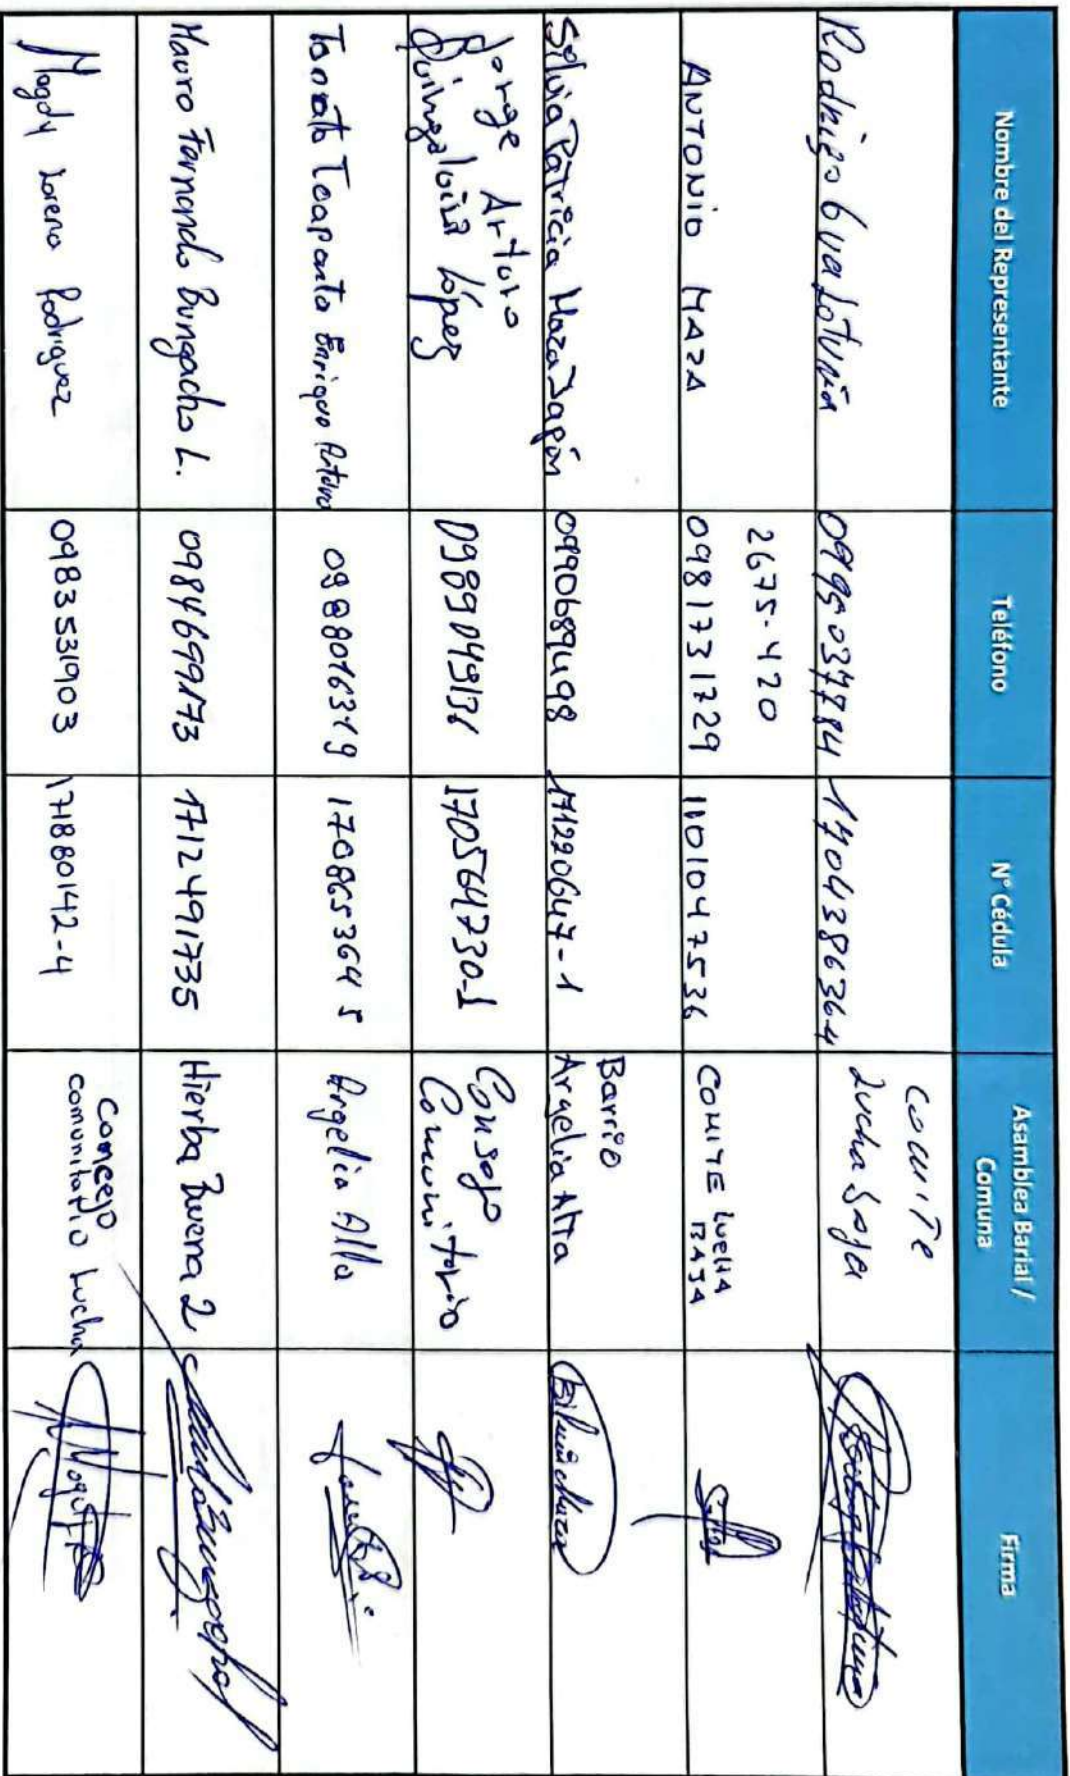 Nombre del Representante Teléfono N° Cédula Asamblea Barial / Comuna Firma
Rodrigo Gualotuña 0995037784 1704386364 Comite Lucha Baja
2675-420
ANTONIO MAZA 0981731729 1101047536 COMITE LUCHA BAJA
Silvia Patricia Maza Japón 0990689498 171220647-1 Barrio Argelia Alta
Jorge Arturo Quingaluisa López 0989049131 170564730-1 Consejo Comunitario
Tonato Toapanta Enrique Arturo 0988016349 170865364 5 Argelia Alta
Mauro Fernando Bungacho L. 0984699173 1712491735 Hierba Buena 2
Magdy Lorena Rodriguez 0983531903 171880142-4 Concejo comunitario Lucha